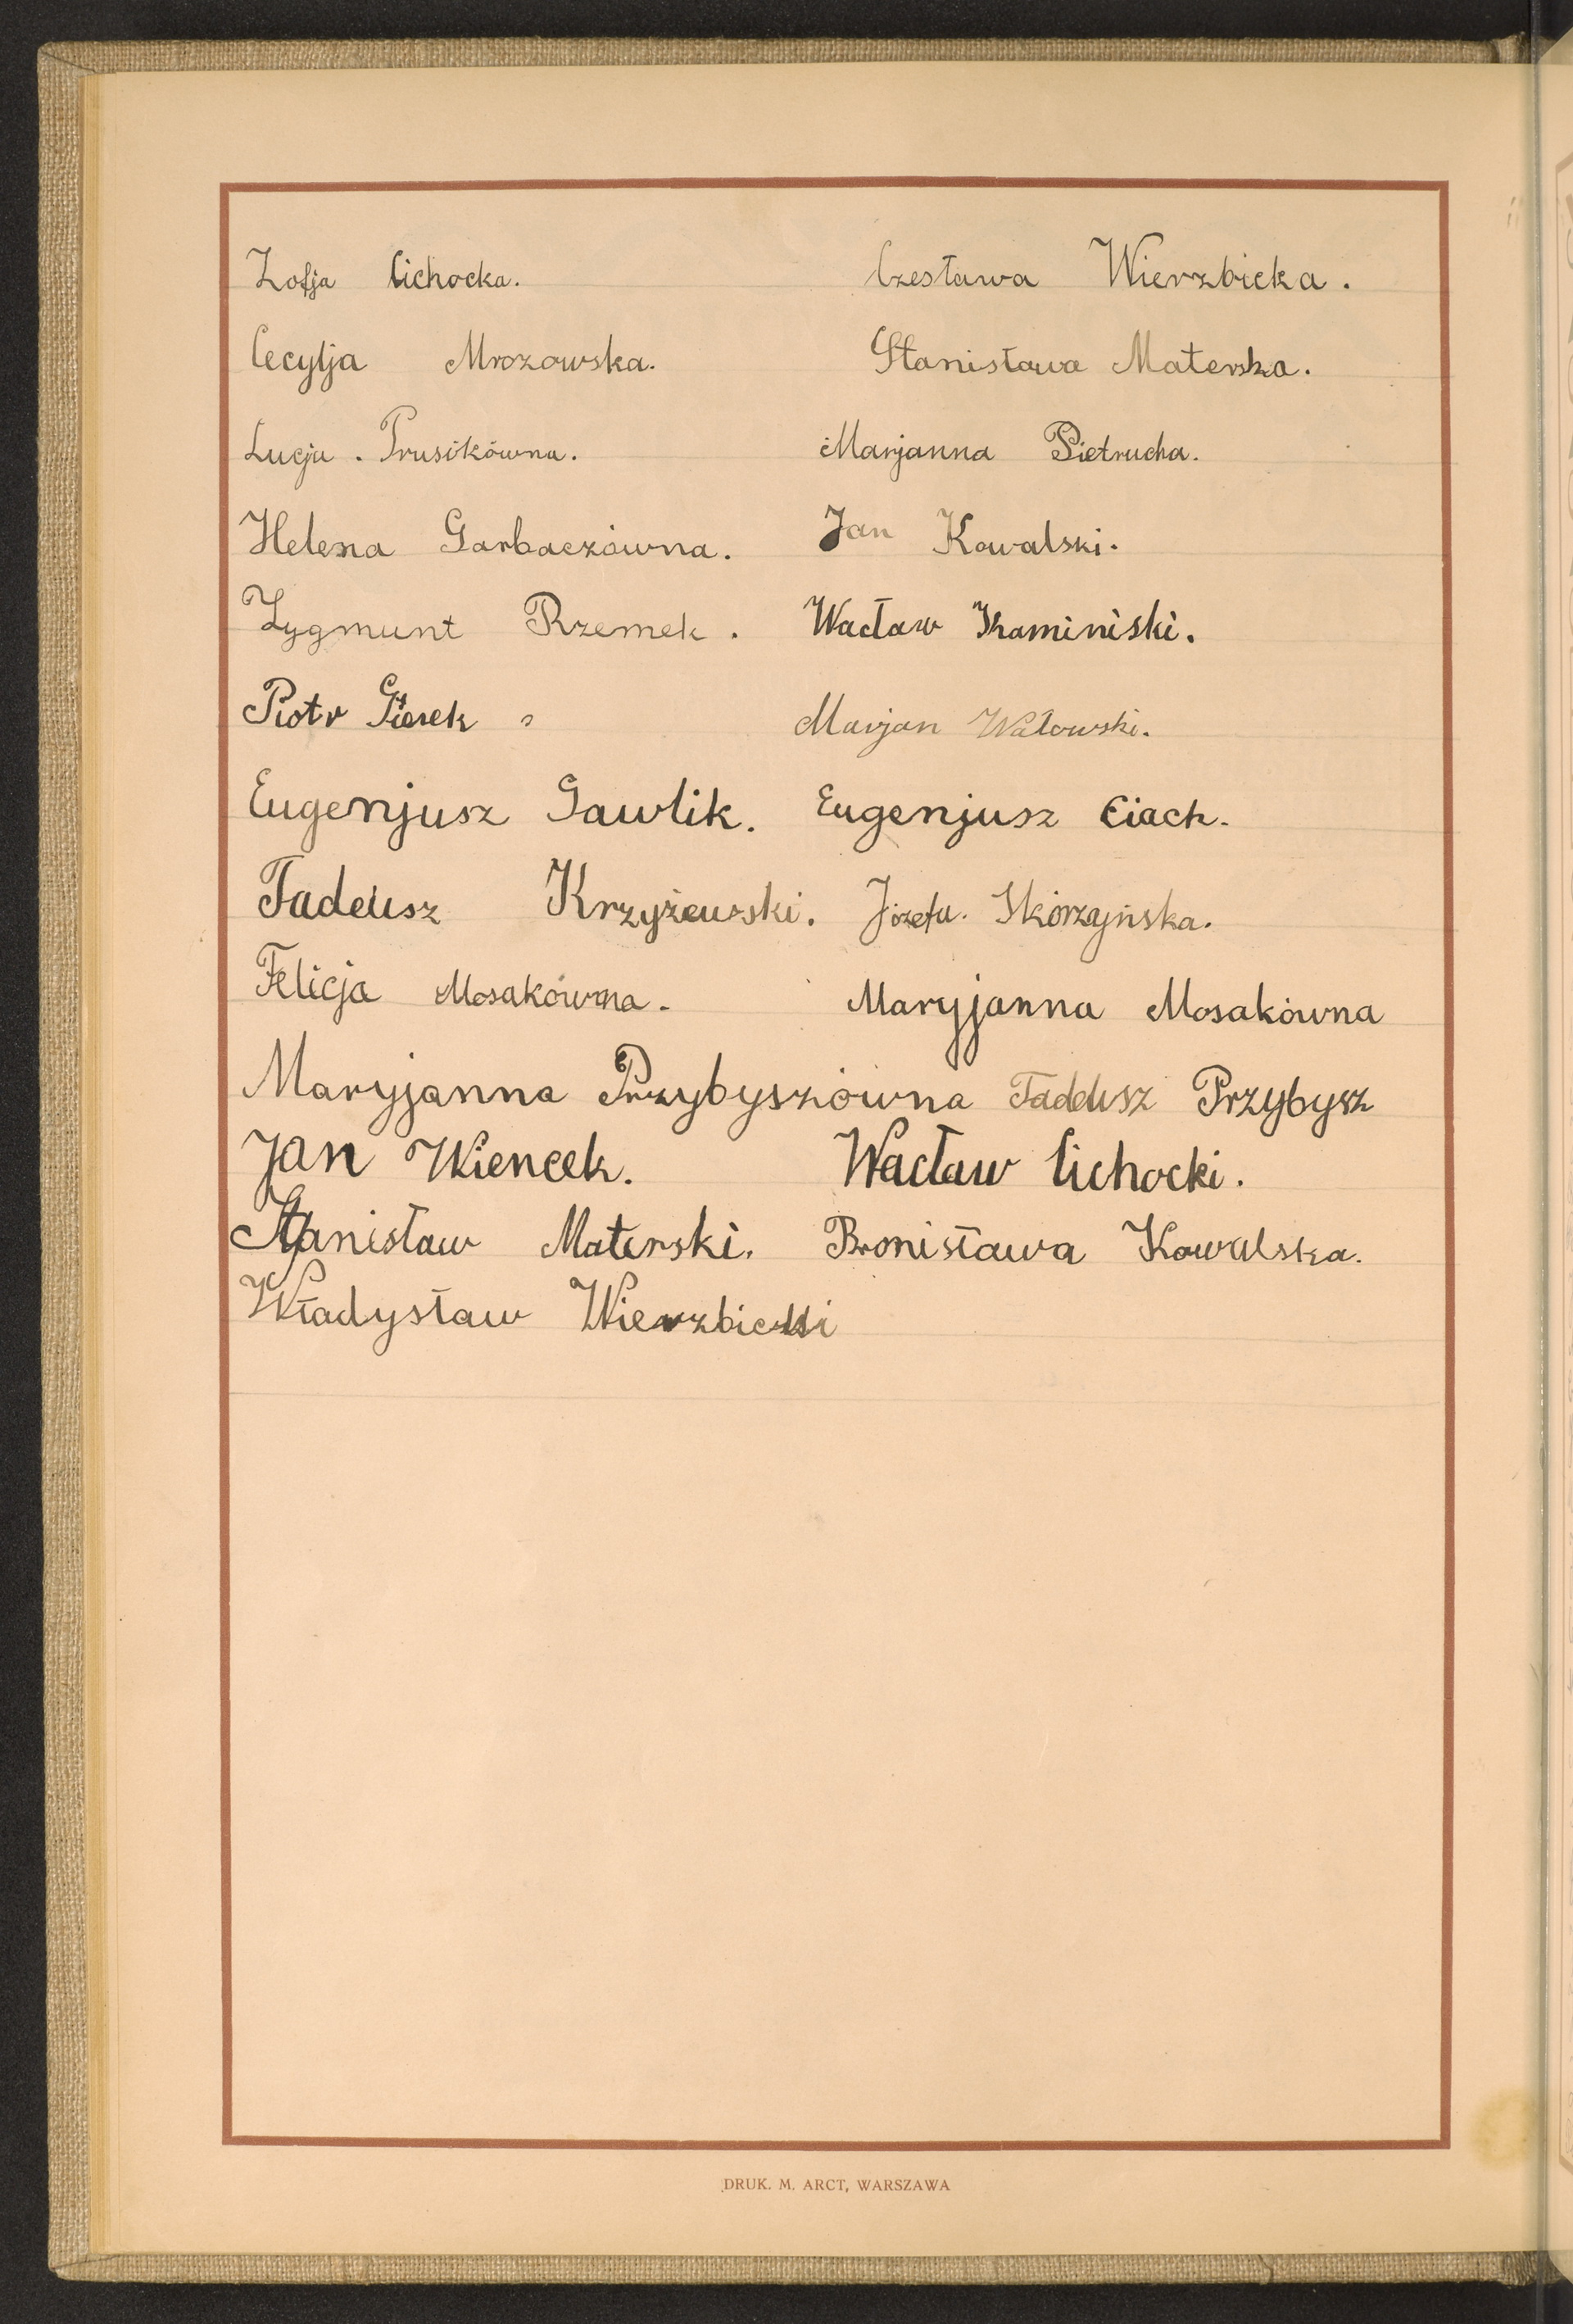 Zofja Cichocka. Czesława Wierzbicka.
Cecylja Mrozowska. Stanisława Materska.
Lucja. Prusikówna. Marjanna Pietrucha.
Helena Garbaczówna. Jan Kowalski.
Zygmunt Rzemek. Wacław Kaminiski.
Piotr Marjan Watowski.
Eugenjusz Gawlik. Eugenjusz Ciach.
Tadeusz Krzyżewski. Józefa. Skórzyńska.
Felicja Mosakówna. Maryjanna Mosakówna
Maryjanna Przybyszówna Tadeusz Przybysz
Jan Wiencek. Wacław Cichocki.
Stanisław Materski. Bronisława Kowalska.
Władysław Wierzbicki
DRUK. M. ARCT, WARSZAWA